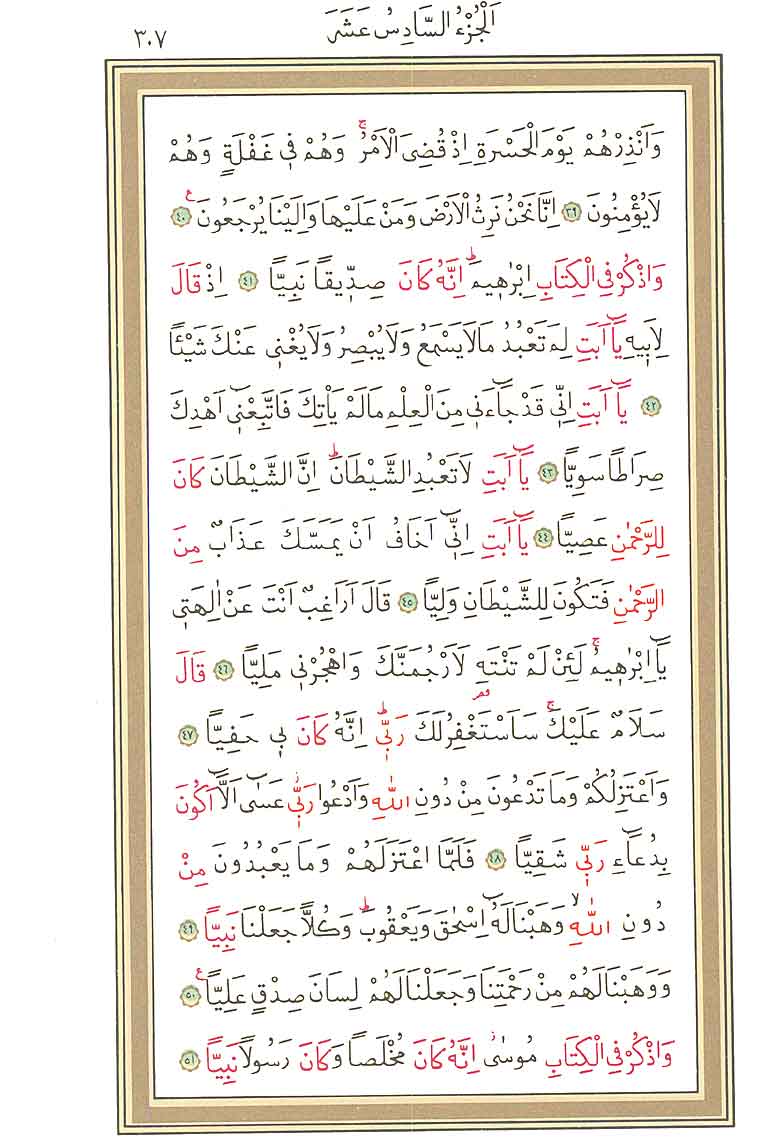 اَلْجُزْءُ السَّادِسُ عَشَرَ
٣٠٧
وَاَنْذِرْهُمْ يَوْمَ الْحَسْرَةِ اِذْ قُضِىَ الْاَمْرُۚ وَهُمْ فٖى غَفْلَةٍ وَهُمْ
لَايُؤْمِنُونَ ﴿٣٩﴾ اِنَّا نَحْنُ نَرِثُ الْاَرْضَ وَمَنْ عَلَيْهَا وَاِلَيْنَا يُرْجَعُونَ ع ﴿٤٠﴾
وَاذْكُرْ فِى الْكِتَابِ اِبْرٰهٖيمَؕ اِنَّهُ كَانَ صِدّٖيقًا نَبِيًّا ﴿٤١﴾ اِذْ قَالَ
لِاَبٖيهِ يَٓا اَبَتِ لِمَ تَعْبُدُ مَالَايَسْمَعُ وَلَايُبْصِرُ وَلَايُغْنٖى عَنْكَ شَيْئًا
﴿٤٢﴾ يَٓا اَبَتِ اِنّٖى قَدْ جَٓاءَنٖى مِنَ الْعِلْمِ مَالَمْ يَاْتِكَ فَاتَّبِعْنٖٓى اَهْدِكَ
صِرَاطًا سَوِيًّا ﴿٤٣﴾ يَٓا اَبَتِ لَاتَعْبُدِ الشَّيْطَانَؕ اِنَّ الشَّيْطَانَ كَانَ
لِلرَّحْمٰنِ عَصِيًّا ﴿٤٤﴾ يَٓا اَبَتِ اِنّٖٓى اَخَافُ اَنْ يَمَسَّكَ عَذَابٌ مِنَ
الرَّحْمٰنِ فَتَكُونَ لِلشَّيْطَانِ وَلِيًّا ﴿٤٥﴾ قَالَ اَرَاغِبٌ اَنْتَ عَنْ اٰلِهَتٖى
يَٓا اِبْرٰهٖيمُۚ لَئِنْ لَمْ تَنْتَهِ لَاَرْجُمَنَّكَ وَاهْجُرْنٖى مَلِيًّا ﴿٤٦﴾ قَالَ
سَلَامٌ عَلَيْكَۚ سَاَسْتَغْفِرُلَكَ رَبّٖىؕ اِنَّهُ كَانَ بٖى حَفِيًّا ﴿٤٧﴾
وَاَعْتَزِلُكُمْ وَمَا تَدْعُونَ مِنْ دُونِ اللّٰهِ وَاَدْعُوا رَبّٖىؗ عَسٰٓى اَلَّٓا اَكُونَ
بِدُعَٓاءِ رَبّٖى شَقِيًّا ﴿٤٨﴾ فَلَمَّا اعْتَزَلَهُمْ وَمَا يَعْبُدُونَ مِنْ
دُونِ اللّٰهِۙ وَهَبْنَالَهُٓ اِسْحٰقَ وَيَعْقُوبَؕ وَكُلًّا جَعَلْنَا نَبِيًّا ﴿٤٩﴾
وَوَهَبْنَالَهُمْ مِنْ رَحْمَتِنَا وَجَعَلْنَالَهُمْ لِسَانَ صِدْقٍ عَلِيًّا ع ﴿٥٠﴾
وَاذْكُرْ فِى الْكِتَابِ مُوسٰىؗ اِنَّهُ كَانَ مُخْلَصًا وَكَانَ رَسُولًا نَبِيًّا ﴿٥١﴾